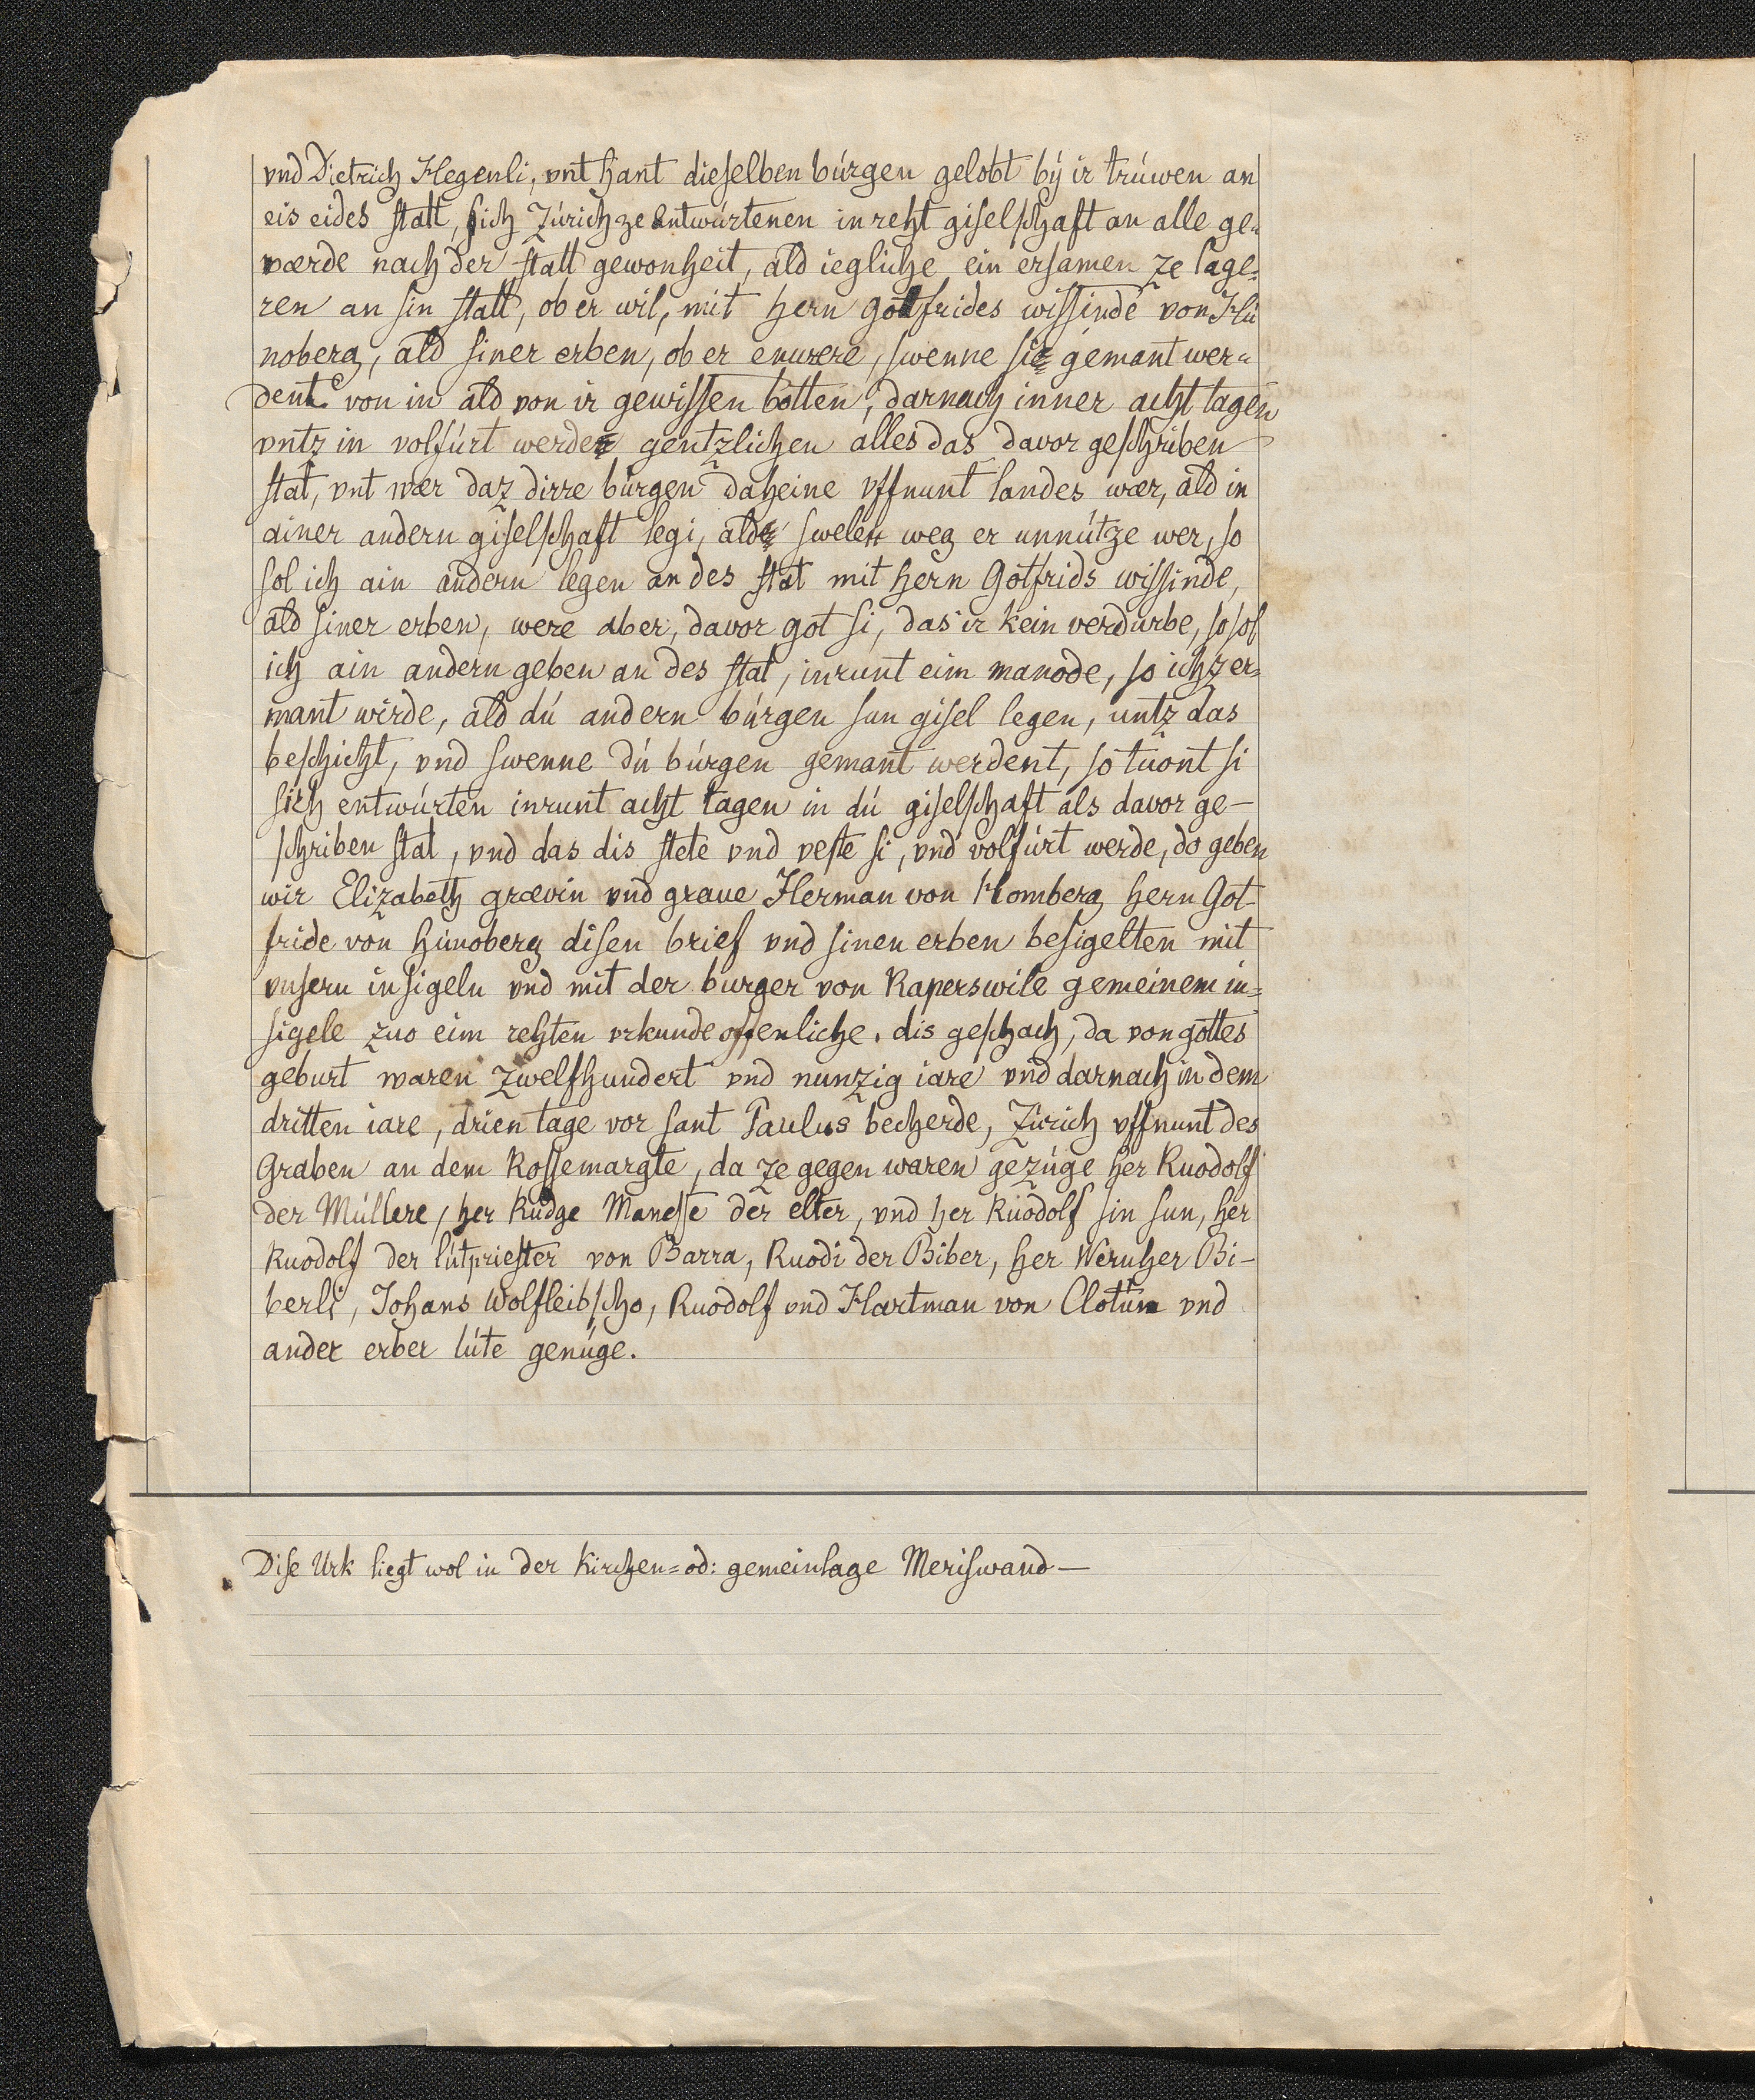 vnd Dietrich Hegenli, vnt hant dieselben búrgen gelobt bý ir trúwen an
eis eides statt, sich Zúrich ze entwúrtenen in reht giselschaft an alle ge-
værde nach der statt gewonheit, ald iegliche ein ersamen ze lage-
ren an sin statt, ob er wil, mit hern gotfrides wissinde von Hú
noberg, ald siner erben, ob er enwere, swenne sie gemant wer-
dent von in ald von ir gewissen botten, darnach inner acht tagen
vntz in volfúrt werde gentzlichen alles das davor geschriben
stat, vnt wær daz dirre búrgen daheine vffnunt landes wær, ald in
ainer andern giselschaft legi, ald swelen weg er unnútze wer, so
sol ich ain andern legen an des stat mit hern Gotfrids wissinde,
ald siner erben, were aber, davor got si, das ir kein verdurbe, so sol
ich ain andern geben an des stat, inrunt eim manode, so ich zer-
mant wirde, ald dú andern búrgen sun gisel legen, untz das
beschicht, vnd swenne dú búrgen gemant werdent, so tuont si
sich entwúrten inrunt acht tagen in dú giselschaft als davor ge-
schriben stat, vnd das dis stete vnd veste si, vnd volfúrt werde, do geben
wir Elizabeth grævin vnd graue Herman von Homberg hern Got-
fride von húnoberg disen brief vnd sinen erben besigelten mit
vnsern insigeln vnd mit der burger von Raperswile gemeinem in-
sigele zuo eim rehten vrkunde offenliche. dis geschach, da von gottes
geburt waren zwelfhundert vnd nunzig iare vnd darnach in dem
dritten iare, drien tage vor sant Paulus becherde, Zúrich vffnunt des
Graben an dem Rossemargte, da ze gegen waren gezúge her Ruodolf
der Múllere, her Rudge Manesse der elter, vnd her Ruodolf sin sun, her
Ruodolf der lútpriester von Barra, Ruodi der Biber, her Wernher Bi-
berli, Johans Wolfleibscho, Ruodolf vnd Hartman von Clotún vnd
ander erber lúte genúge.
Dise Urk liegt wol in der Kirchen= od: gemeinlage Meriswand —